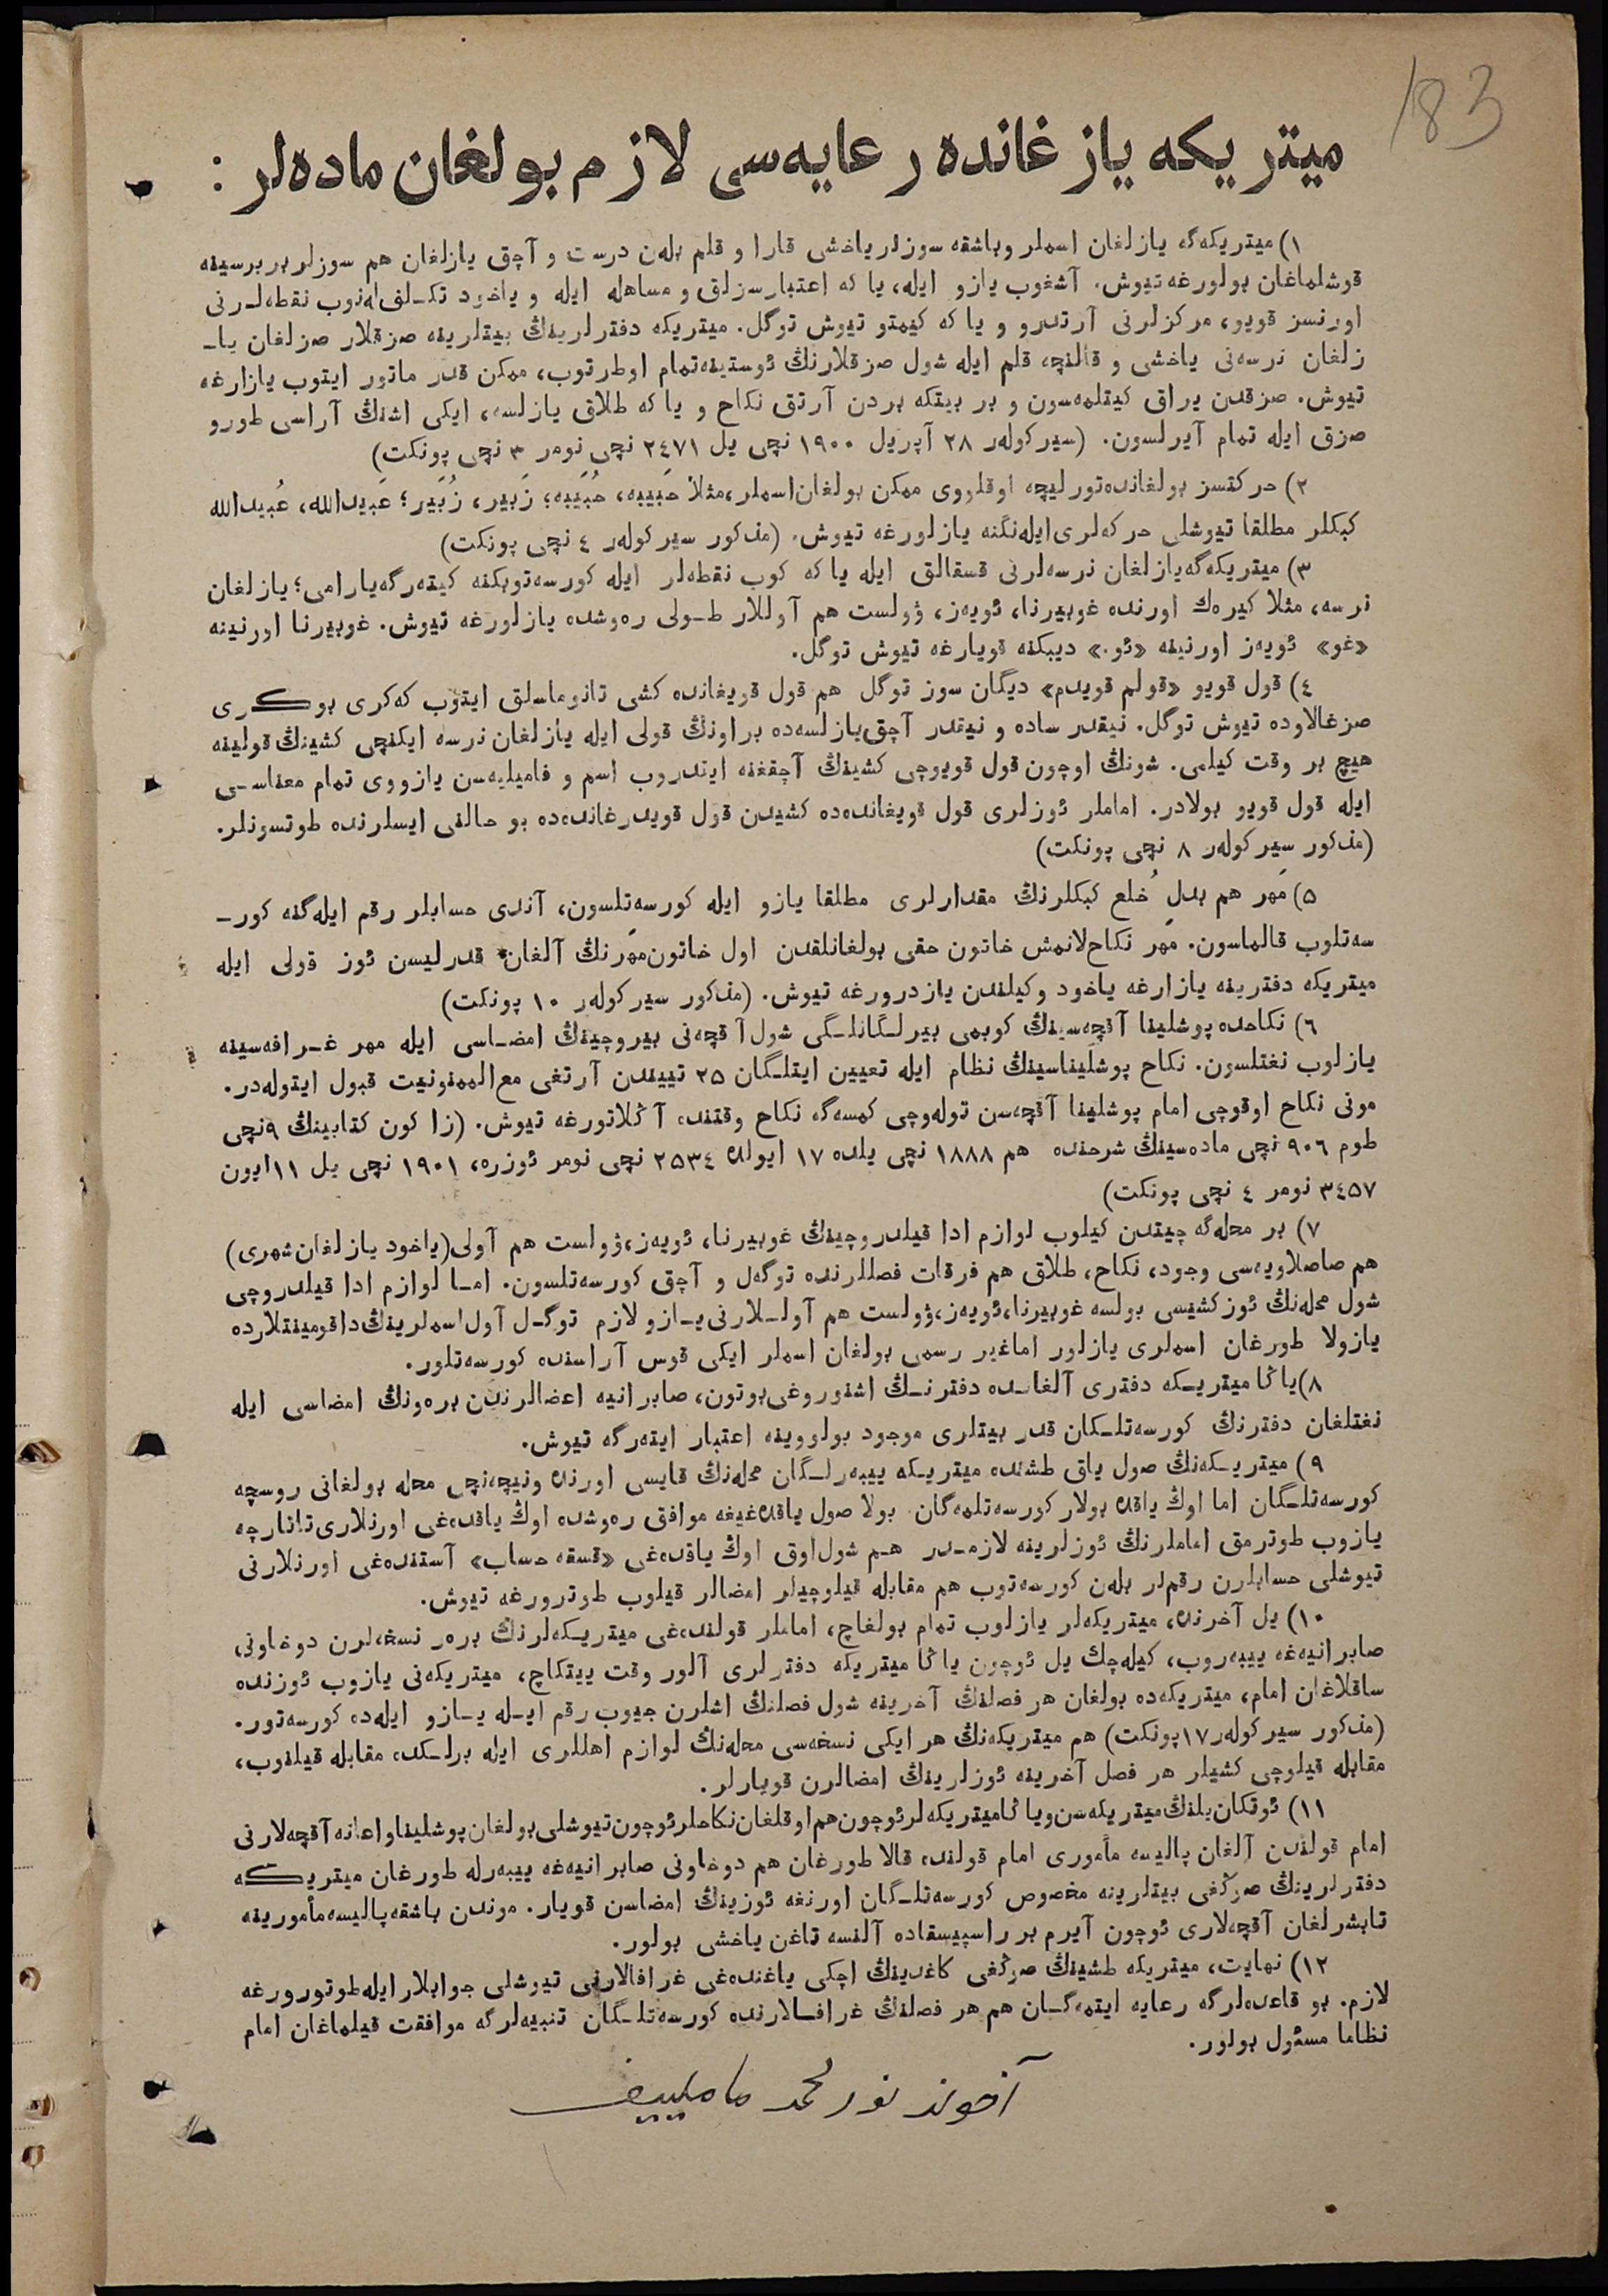 183
میتریكه یازغانده رعایه‌سی لازم بولغان ماده‌لر :
۱) میتریكه‌گه یازلغان اسملر وباشقه سوزلر یاخشی قارا و قلم بلەن درست و آچق یازلغان هم سوزلر بربرسینه
قوشلماغان بولورغه تیوش. آشغوب یازو ایله، یا كه اعتبارسزلق و مساهله ایله و یاخود تكـلف‌له‌نوب نقطه‌لـرنی
اورنسز قویو، مركزلرنی آرتدرو و یا كه كیمتو تیوش توگل. میتریكه دفترلرینڭ بیتلرینه صزقلار صزلغان یا-
زلغان نرسه‌نی یاخشی و قالنچه قلم ایله شول صزقلارنڭ ئوستینه‌تمام اوطرتوب، ممكن قدر ماتور ایتوب یازارغه
تیوش. صزقدن یراق كیتلمه‌سون و بر بیتكه بردن آرتق نكاح و یا كه طلاق یازلسه، ایكی اشنڭ آراسی طورو
صزق ایله تمام آیرلسون. (سیركولەر ۲۸ آپریل ۱۹۰۰ نچی یل ۲٤۷۱ نچی نومر ۳ نچی پونكت)
۲) حركتسز بولغانده‌تورلیچه اوقلووی ممكن بولغان‌اسملر،مثلا حَبیبه، حُبَیبه؛ زَبیر، زُبَیر؛ عَبیدالله، عُبیدالله
كبكلر مطلقا تیوشلی حركه‌لری‌ایله‌نگنه یازلورغه تیوش. (مذكور سیركولەر ٤ نچی پونكت)
۳) میتریكه‌گه‌یازلغان نرسه‌لرنی قسقالق ایله یا كه كوب نقطه‌لر ایله كورسه‌توبكنه كیته‌رگه‌یارامی؛ یازلغان
نرسه، مثلا كیره‌ك اورنده غوبیرنا، ئویه‌ز، ؤولست هم آوللار طـولی ره‌وشده یازلورغه تیوش. غوبیرنا اورنینه
«غو» ئویه‌ز اورنینه «ئو.» دیبكنه قویارغه تیوش توگل.
٤) قول قویو «قولم قویدم» دیگان سوز توگل هم قول قویغانده كشی تانوماسلق ایتوب كه‌كری بوكـری
صزغالاوده تیوش توگل. نیقدر ساده و نیقدر آچق‌یازلسه‌ده براونڭ قولی ایله یازلغان نرسه ایكنچی كشینڭ قولینه
هیچ بر وقت كیلمی. شونڭ اوچون قول قویوچی كشینڭ آچقغنه ایتدروب اسم و فامیلیه‌سن یازووی تمام معناسـی
ایله قول قویو بولادر. اماملر ئوزلری قول قویغانده‌ده كشیدن قول قویدرغانده‌ده بو حالنی ایسلرنده طوتسونلر.
(مذكور سیركولەر ۸ نچی پونكت)
۵) مَهر هم بدلِ خُلع كبكلرنڭ مقدارلری مطلقا یازو ایله كورسه‌تلسون، آندی حسابلر رقم ایله‌گنه كور-
سه‌تلوب قالماسون. مَهر نكاح‌لانمش خاتون حقی بولغانلقدن اول خاتون‌مَهرنڭ آلغان قدرلیسن ئوز قولی ایله
میتریكه دفترینه یازارغه یاخود وكیلندن یازدرورغه تیوش. (مذكور سیركولەر ۱۰ پونكت)
٦) نكاحده پوشلینا آقچه‌سینڭ كوبمی بیرلـگانلـگی شول آقچه‌نی بیروچینڭ امضـاسی ایله مهر غـرافه‌سینه
یازلوب نغتلسون. نكاح پوشلیناسینڭ نظام ایله تعیین ایتلـگان ۲۵ تییندن آرتغی مع‌الممنونیت قبول ایتوله‌در.
مونی نكاح اوقوچی امام پوشلینا آقچه‌سن توله‌وچی كمسه‌گه نكاح وقتنده آڭلاتورغه تیوش. (زاكون كتابینڭ ۹نچی
طوم ۹۰٦ نچی ماده‌سینڭ شرحنده هم ۱۸۸۸ نچی یلده ۱۷ ایولده ۲۵۳٤ نچی نومر ئوزره، ۱۹۰۱ نچی یل ۱۱ایون
۳٤۵۷ نومر ٤ نچی پونكت)
۷) بر محله‌گه چیتدن كیلوب لوازم ادا قیلدروچینڭ غوبیرنا، ئویه‌ز،ؤولست هم آولی(یاخود یازلغان‌شهری)
هم صاصلاویه‌سی وجود، نكاح، طلاق هم فرقات فصللرنده توگەل و آچق كورسه‌تلسون. امـا لوازم ادا قیلدروچی
شول محله‌نڭ ئوزكشیسی بولسه غوبیرنا،ئویه‌ز،ؤولست هم آولـلارنی یـازو لازم توگـل آول‌اسملرینڭ‌داقومینتلارده
یازولا طورغان اسملری یازلور اماغیر رسمی بولغان اسملر ایكی قوس آراسنده كورسه‌تلور.
۸)یاڭا میتریـكه دفتری آلغانـده دفترنـڭ اشنوروغی‌بوتون، صابرانیه اعضالرندن بره‌ونڭ امضاسی ایله
نغتلغان دفترنڭ كورسه‌تلـكان قدر بیتلری موجود بولووینه اعتبار ایته‌رگه تیوش.
۹) میتریـكه‌نڭ صول یاق طشنده میتریـكه ییبه‌رلـگان محله‌نڭ قایسی اورنده ونیچه‌نچی محله بولغانی روسچه
كورسه‌تلـگان اما اوڭ یاقده بولار كورسه‌تلمه‌گان. بولا صول یاقده‌غیغه موافق ره‌وشده اوڭ یاقده‌غی اورنلاری‌تاتارچه
یازوب طوترمق اماملرنڭ ئوزلرینه لازمـدر هـم شول‌اوق اوڭ یاقده‌غی «قسقه حساب» آستنده‌غی اورنلارنی
تیوشلی حسابلرن رقم‌لر بلەن كورسه‌توب هم مقابله قیلوچیلر امضالر قیلوب طوترورغه تیوش.
۱۰) یل آخرنده، میتریكه‌لر یازلوب تمام بولغاچ، اماملر قولنده‌غی میتریـكه‌لرنڭ بره‌ر نسخه‌لرن دوخاونی
صابرانیه‌غه ییبه‌روب، كیله‌چك یل ئوچون یاڭا میتریكه دفترلری آلور وقت ییتكاچ، میتریكه‌نی یازوب ئوزنده
ساقلاغان امام، میتریكه‌ده بولغان هر فصلنڭ آخرینه شول فصلنڭ اشلرن جیوب رقم ایـله یـازو ایله‌ده كورسه‌تور.
(مذكور سیركولەر۱۷پونكت) هم میتریكه‌نڭ هر ایكی نسخه‌سی محله‌نڭ لوازم اهللری ایله برلـكده مقابله قیلنوب،
مقابله قیلوچی كشیلر هر فصل آخرینه ئوزلرینڭ امضالرن قویارلر.
۱۱) ئوتكان‌یلنڭ‌میتریكه‌سن‌ویاڭامیتریكه‌لرئوچون‌هم‌اوقلغان‌نكاحلرئوچون‌تیوشلی‌بولغان‌پوشلیناواعانه‌آقچه‌لارنی
امام قولندن آلغان پالیسه مأموری امام قولنده قالا طورغان هم دوخاونی صابرانیه‌غه ییبه‌رله طورغان میتریـكه
دفترلرینڭ صوڭغی بیتلرینه مخصوص كورسه‌تلـگان اورنغه ئوزینڭ امضاسن قویار. موندن باشقه‌پالیسه‌مأمورینه
تابشرلغان آقچه‌لاری ئوچون آیرم بر راسپیسقاده آلنسه تاغن یاخشی بولور.
۱۲) نهایت، میتریكه طشینڭ صوڭغی كاغدینڭ اچكی یاغنده‌غی غرافالارنی تیوشلی جوابلار ایله‌طوتورورغه
لازم. بو قاعده‌لرگه رعایه ایتمه‌گـان هم هر فصلنڭ غرافـالارنده كورسه‌تلـگان تنبیه‌لرگه موافقت قیلماغان امام
نظاما مسئول بولور.
آخوند نورمحمد مامليیف